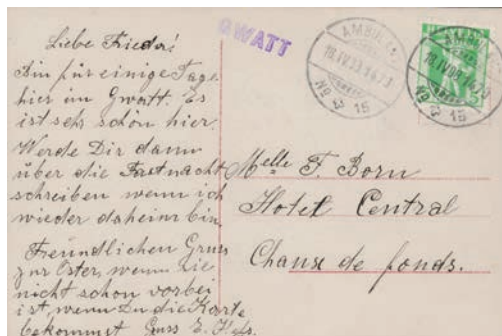 Liebe Frieda!
Bin für einige Tage
hier im Gwatt. Es
ist sehr schön hier.
Werde Dir dann
über die Fastnacht
schreiben wenn ich
wieder daheim bin.
Freundlichen Gruss
zur Oster, wenn sie
nicht schon vorbei
ist, wenn Du die Karte
bekommst Gruss E.
GWATT
AMBULANT
No 15
AMBULANT
No 15
Melle F. Born
Hotel Central
Chaux de fonds.